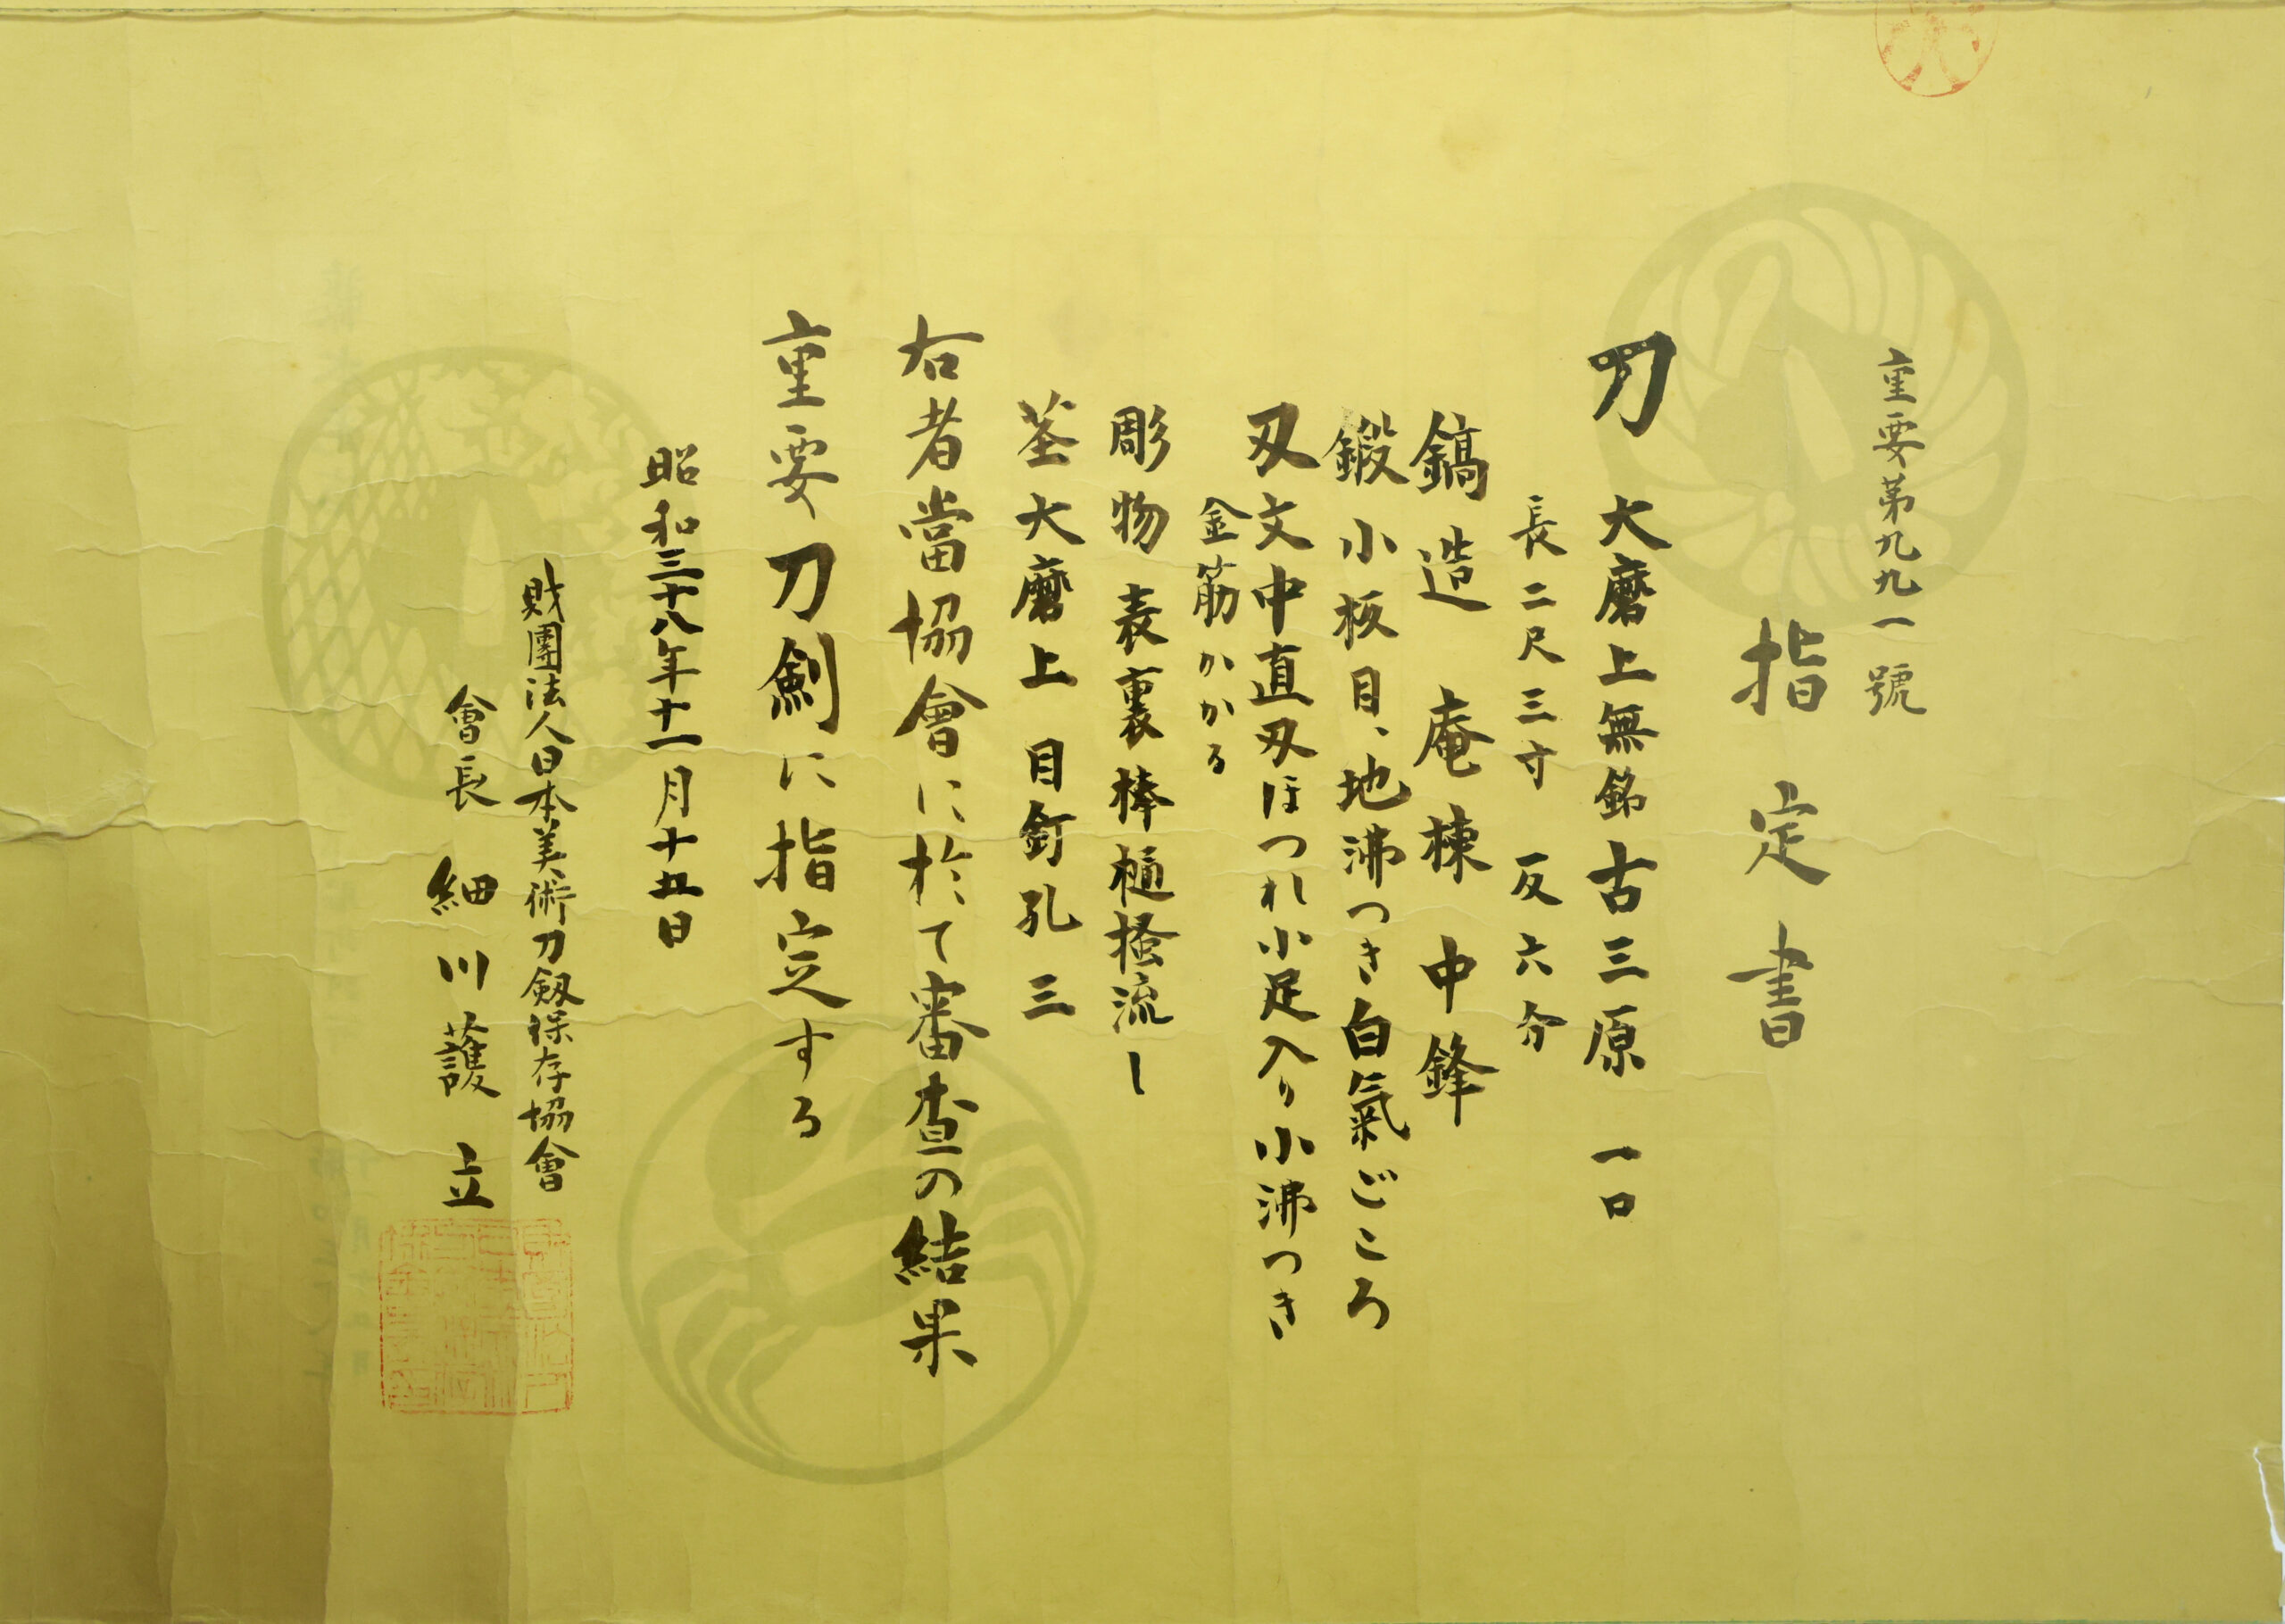 重要第九九一號
指定書
刀 大磨上無銘古三原 一口
長二尺三寸 反六分
鎬造 庵棟 中鋒
鍛小板目、地沸つき白氣ごころ
刃文中直刃ほつれ小足入り小沸つき
金筋かかる
彫物 表裏棒樋掻流し
茎大磨上 目釘孔三
右者當協會に於て審査の結果
重要刀劍に指定する
昭和三十八年十一月十五日
財團法人日本美術刀剱保存協會
會長 細川護立